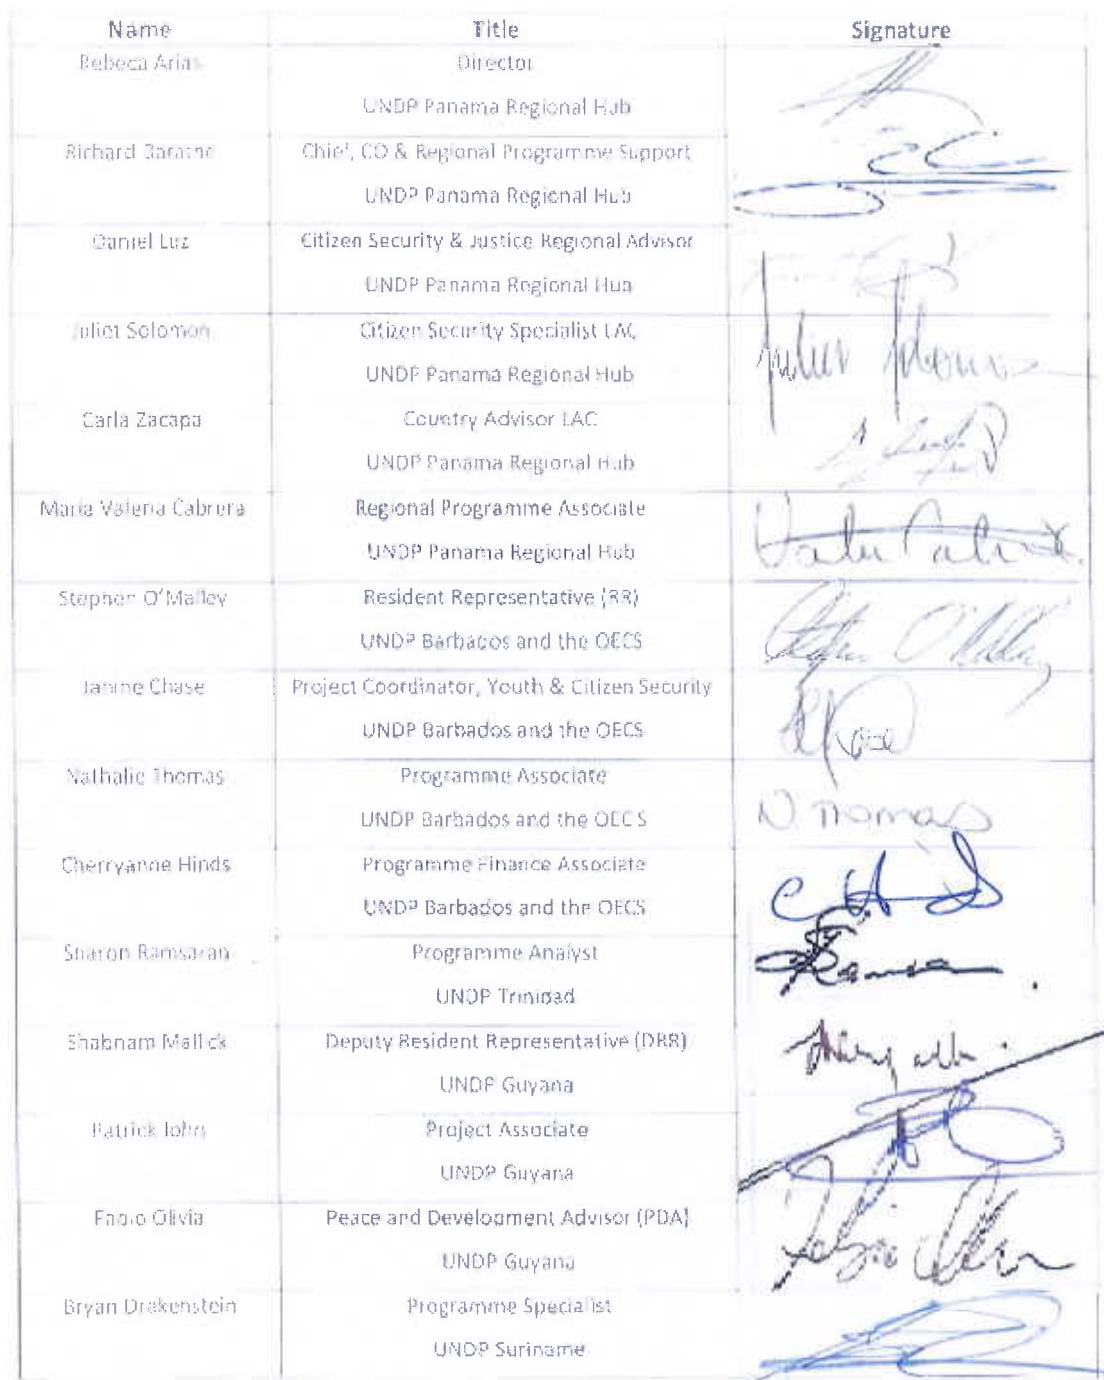 Name Title Signature
Rebeca Arias Director
UNDP Panama Regional Hub
Richard Barathe Chief, CO & Regional Programme Support
UNDP Panama Regional Hub
Daniel Luz Citizen Security & Justice Regional Advisor
UNDP Panama Regional Hub
Juliet Solomon Citizen Security Specialist LAC Juliet Solomon
UNDP Panama Regional Hub
Carla Zacapa Country Advisor LAC
UNDP Panama Regional Hub
Maria Valeria Cabrera Regional Programme Associate
UNDP Panama Regional Hub
Stephen O'Malley Resident Representative (RR) Stephen O'Malley
UNDP Barbados and the OECS
Janine Chase Project Coordinator, Youth & Citizen Security
UNDP Barbados and the OECS
Nathalie Thomas Programme Associate
UNDP Barbados and the OECS N. Thomas
Cherryanne Hinds Programme Finance Associate
UNDP Barbados and the OECS
Sharon Ramsaran Programme Analyst
UNDP Trinidad
Shabnam Mallick Deputy Resident Representative (DRR)
UNDP Guyana
Patrick John Project Associate
UNDP Guyana
Fabio Olivia Peace and Development Advisor (PDA)
UNDP Guyana
Bryan Drakenstein Programme Specialist
UNDP Suriname